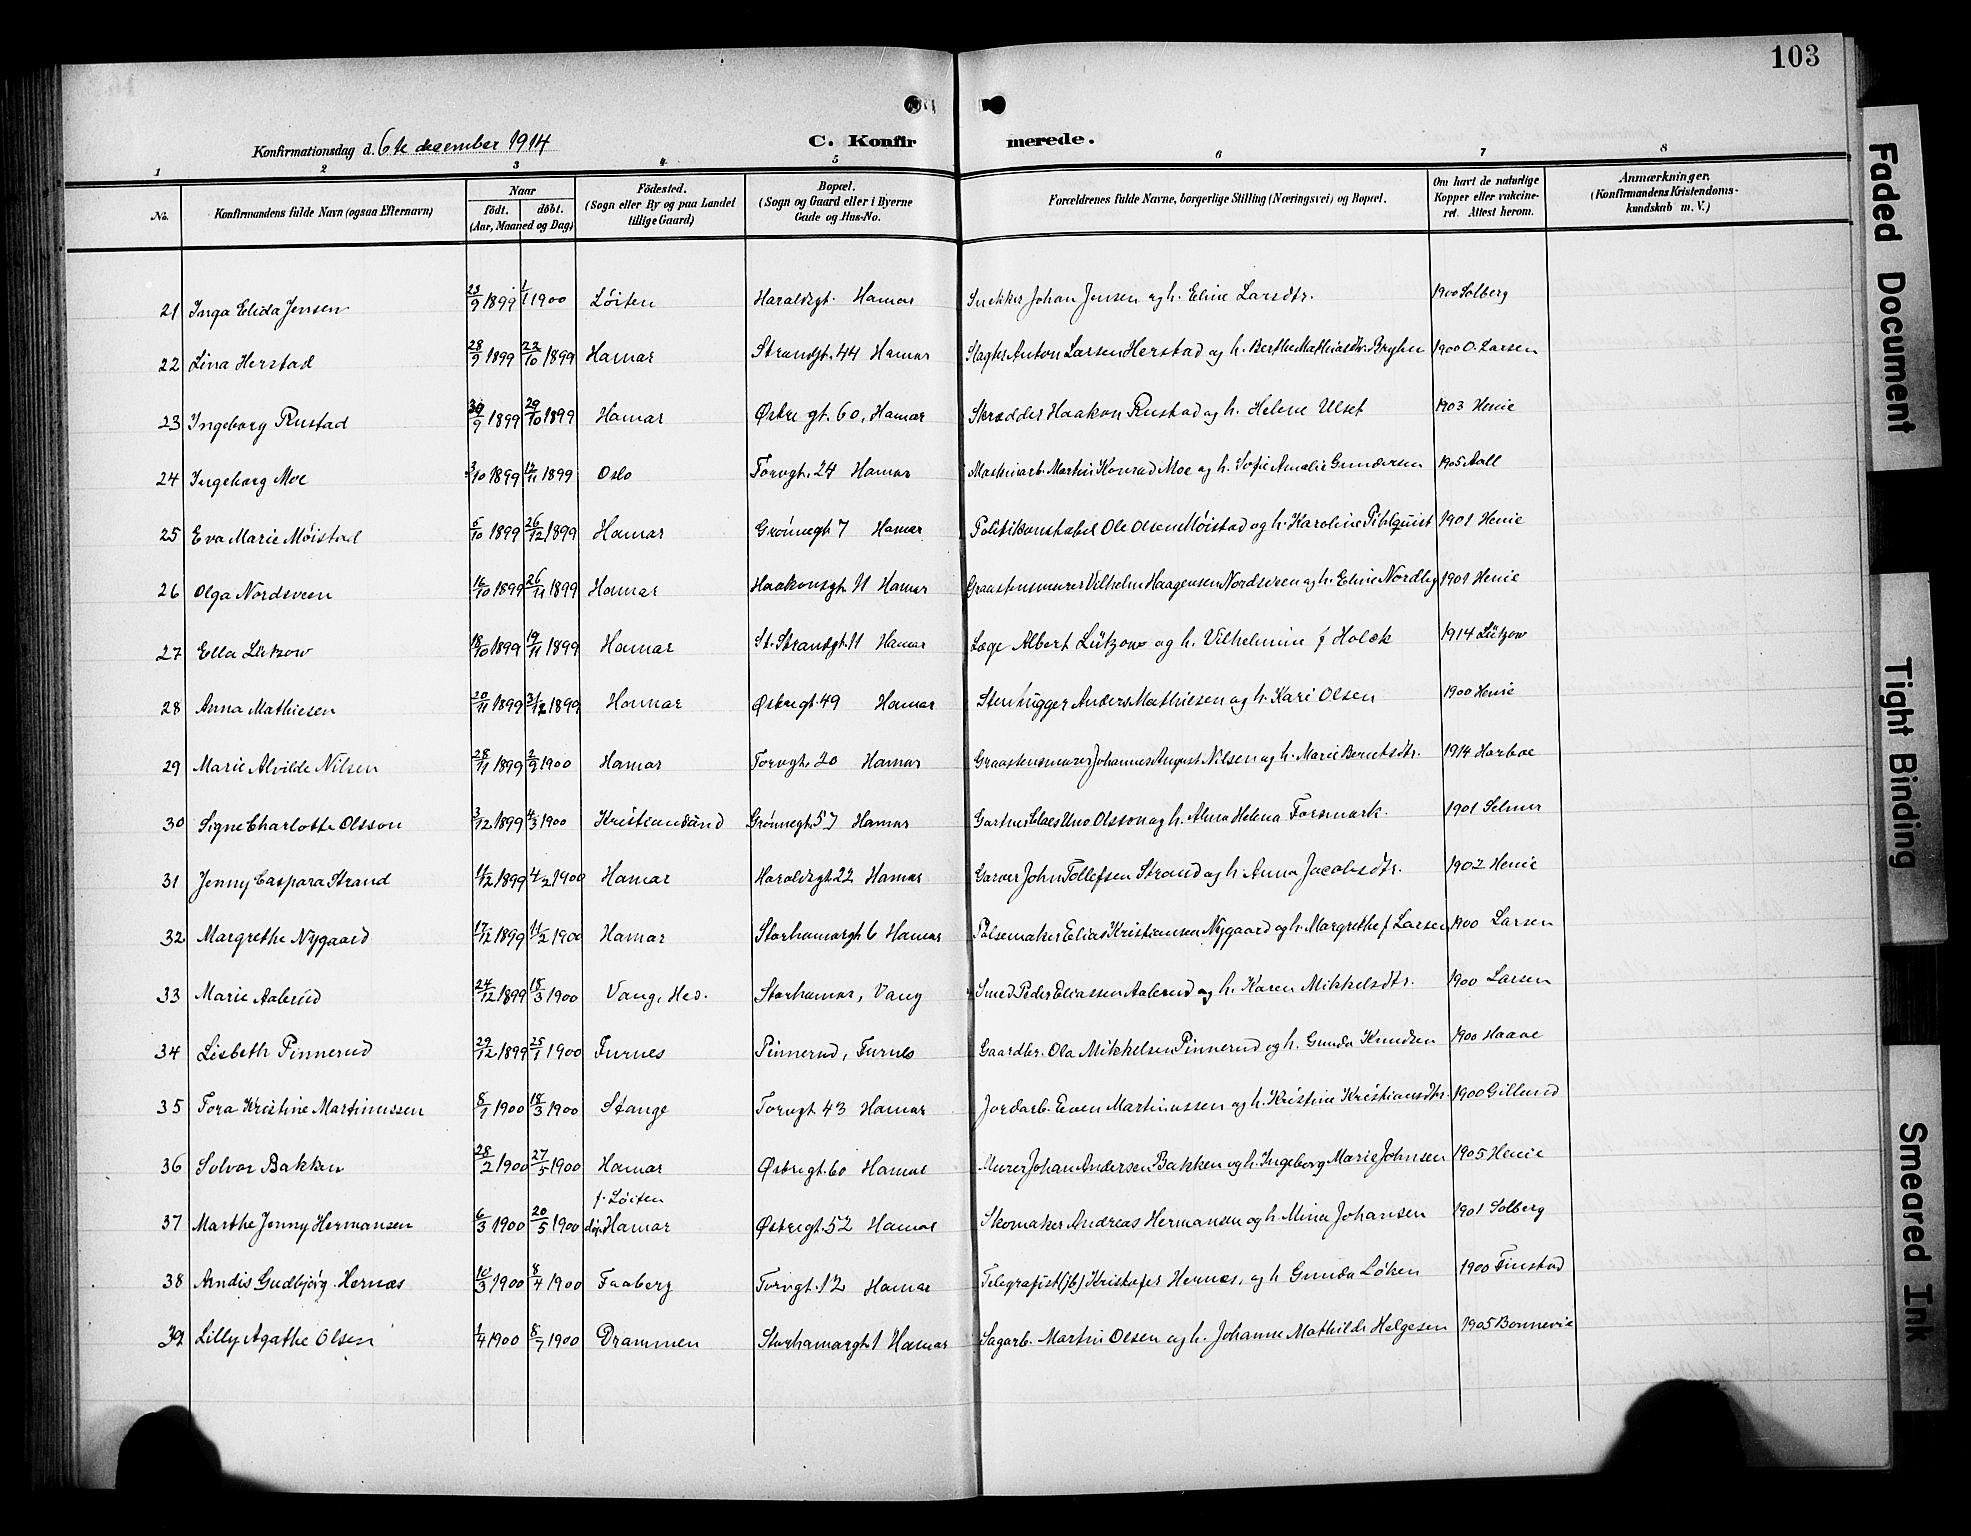 103
Konfirmationsdag d. 6te desember 1914 C. Konfirmerede.
1 2 3 4 5 6 7 8
No. Konfirmandens fulde Navn (ogsaa Efternavn) Naar født. døbt. (Aar, Maaned og Dag) Fødested. (Sogn eller By og paa Landet tillige Gaard) Bopæl. (Sogn og Gaard eller i Byerne Gade og Hus-No. Forældrenes fulde Navne, borgerlige Stilling (Næringsvei) og Bopæl. Om havt de naturlige Kopper eller vakcineret. Attest herom. Anmærkninger. (Konfirmandens Kristendomskundskab m. V.)
21 Inga Elida Jensen 23/9 1899 1/1 1900 Løiten Haraldsgt. Hamar Snekker Johan Jensen og h. Eline Larsdtr. 1900 Solberg
22 Lina Herstad 28/9 1899 23/10 1899 Hamar Strandgt. 44 Hamar Slagter Anton Larsen Herstad og h. Berthe Mathiasdtr. Bryhn 1900 O. Larsen
23 Ingeborg Rustad 30/9 1899 29/10 1899 Hamar Østre gt. 60, Hamar Skrædder Haakon Rustad og h. Helene Ulset 1903 Henie
24 Ingeborg Moe 3/10 1899 12/11 1899 Oslo Torvgt. 24 Hamar Maskinarb. Martin Konrad Moe og h. Sofie Amalie Gundersen 1905 Aall
25 Eva Marie Møistad 5/10 1899 26/12 1899 Hamar Grønnegt 7 Hamar Politikonstabel Ole Olsen Møistad og h. Karoline Pihlquist 1901 Henie
26 Olga Nordsveen 16/10 1899 26/11 1899 Hamar Haakonsgt. 11 Hamar Graastensmurer Vilhelm Haagensen Nordsveen og h. Eline Nordby 1901 Henie
27 Ella Lützow 18/10 1899 19/11 1899 Hamar St. Strandgt. 11 Hamar Læge Albert Lützow og h. Vilhelmine f Holck 1914 Lützow
28 Anna Mathiesen 20/11 1899 31/12 1899 Hamar Østregt. 49 Hamar Stenhugger Anders Mathiesen og h. Kari Olsen 1900 Henie
29 Marie Alvilde Nilsen 28/11 1899 2/9 1900 Hamar Torvgt. 20 Hamar Graastensmurer Johannes August Nilsen og h. Marie Berntsdtr. 1914 Harboe
30 Signe Charlotte Olsson 3/12 1899 4/3 1900 Kristiansund Grønnegt. 57 Hamar Gartner Claes Uno Olsson og h. Alma Helena Forsmark. 1901 Selmer
31 Jenny Caspara Strand 11/12 1899 4/2 1900 Hamar Haraldsgt 22 Hamar Garver John Tollefsen Strand og h. Anna Jacobsdtr. 1902 Henie
32 Margrethe Nygaard 17/12 1899 11/2 1900 Hamar Storhamargt. 6 Hamar Pølsemaker Elias Kristiansen Nygaard og h. Margrethe f Larsen 1900 Larsen
33 Marie Aalerud 24/12 1899 18/3 1900 Vang, Hed. Storhamar, Vang Smed Peder Eliassen Aalerud og h. Karen Mikkelsdtr. 1900 Larsen
34 Lisbeth Pinnerud 29/12 1899 25/1 1900 Furnes Pinnerud, Furnes Gaardbr. Ola Mikkelsen Pinnerud og h. Gunda Knudsen 1900 Haave
35 Tora Kristine Martinussen 8/1 1900 18/3 1900 Stange Torvgt 43 Hamar Jordarb. Even Martinussen og h. Kristine Kristiansdtr. 1900 Gillund
36 Solvor Bakken 28/2 1900 27/5 1900 Hamar Østregt. 60 Hamar Murer Johan Andersen Bakken og h. Ingeborg Marie Johnsen 1905 Henie
f. Løiten
37 Marthe Jenny Hermansen 6/3 1900 20/5 1900 døpt Hamar Østregt. 52 Hamar Skomaker Andreas Hermansen og h Mina Johansen 1901 Solberg
38 Arndis Gudbjörg Hernæs 10/3 1900 8/4 1900 Faaberg Torvgt. 12 Hamar Telegrafist (jb) Kristofer Hernæs, og h Gunda Løken 1900 Finstad
39 Lilly Agathe Olsen 1/4 1900 8/7 1900 Drammen Storhamargt. 1 Hamar Sagarb. Martin Olsen og h. Johanne Mathilde Helgesen 1905 Bonnevie
Faded Document
Tight Binding
Smeared Ink